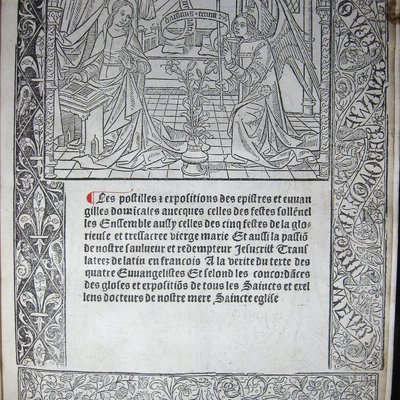 Les postilles ⁊ expositions des epistres et euuan
gilles domīcales auecques celles des festes sollēnel
les Ensemble aussy celles des cinq festes de la glo⸗
rieuse et tressacree vierge marie Et aussi la passiō
de nostre saulueur et redempteur Jesucrist Trans
lateez de latin en francois A la verite du texte des
quatre Euuangelistes Et selond les concordāces
des gloses et expositiōs de tous les Saincts et exel
lens docteurs de nostre mere Saincte eglise